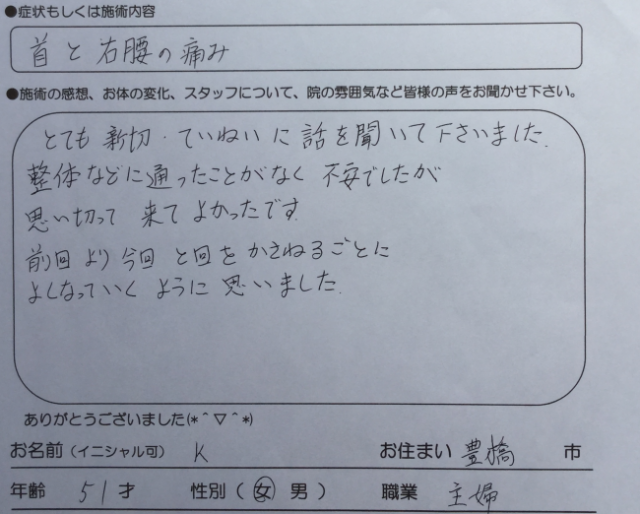 ●症状もしくは施術内容
首と右腰の痛み
●施術の感想、お体の変化、スタッフについて、院の雰囲気など皆様の声をお聞かせ下さい。
とても新切・ていねいに話を聞いて下さいました.
整体などに通ったことがなく不安でしたが
思い切って来てよかったです
前回より今回と回をかさねるごとに
よくなっていくように思いました.
ありがとうございました(*＾▽＾*)
お名前（イニシャル可） K お住まい 豊橋 市
年齢 51才 性別（ 女 男 ） 職業 主婦